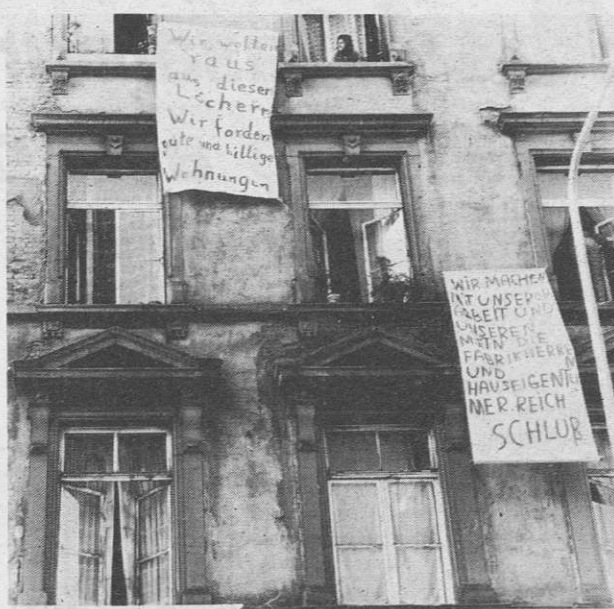 Wir wollen
raus
aus dieser
Löchern
Wir fordern
gute und billige
Wohnungen
WIR MACHEN
MIT UNSERER
ARBEIT UND
UNSEREN
MIETN DIE
FABRIKHERREN
UND
HAUSEIGENTÜ
MER REICH
SCHLUß